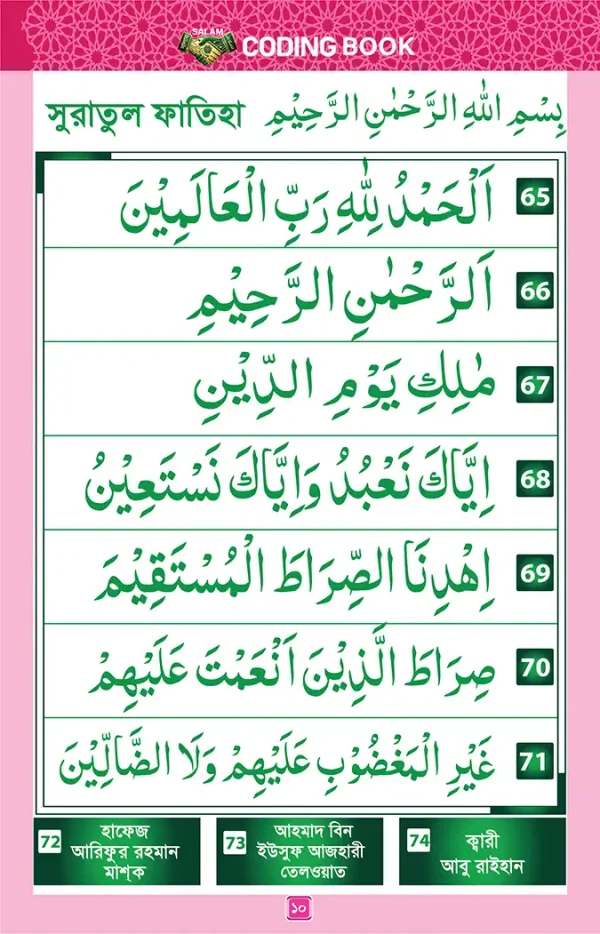 SALAM
CODING BOOK
সুরাতুল ফাতিহা بِسْمِ اللهِ الرَّحْمٰنِ الرَّحِيْمِ
65 اَلْحَمْدُ لِلّٰهِ رَبِّ الْعَالَمِيْنَ
66 اَلرَّحْمٰنِ الرَّحِيْمِ
67 مٰلِكِ يَوْمِ الدِّيْنِ
68 اِيَّاكَ نَعْبُدُ وَاِيَّاكَ نَسْتَعِيْنُ
69 اِهْدِنَا الصِّرَاطَ الْمُسْتَقِيْمَ
70 صِرَاطَ الَّذِيْنَ اَنْعَمْتَ عَلَيْهِمْ
71 غَيْرِ الْمَغْضُوْبِ عَلَيْهِمْ وَلَا الضَّالِّيْنَ
72 হাফেজ
আরিফুর রহমান
মাশ্ক
73 আহমাদ বিন
ইউসুফ আজহারী
তেলওয়াত
74 ক্বারী
আবু রাইহান
১০